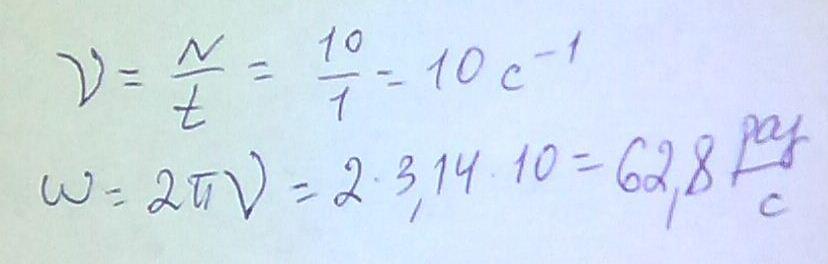 ν = N/t = 10/1 = 10 с⁻¹
ω = 2πν = 2·3,14·10 = 62,8 рад/с